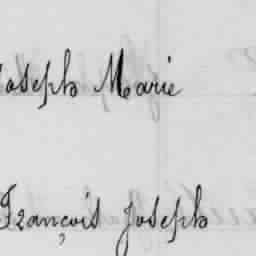 Joseph Marie
François Joseph